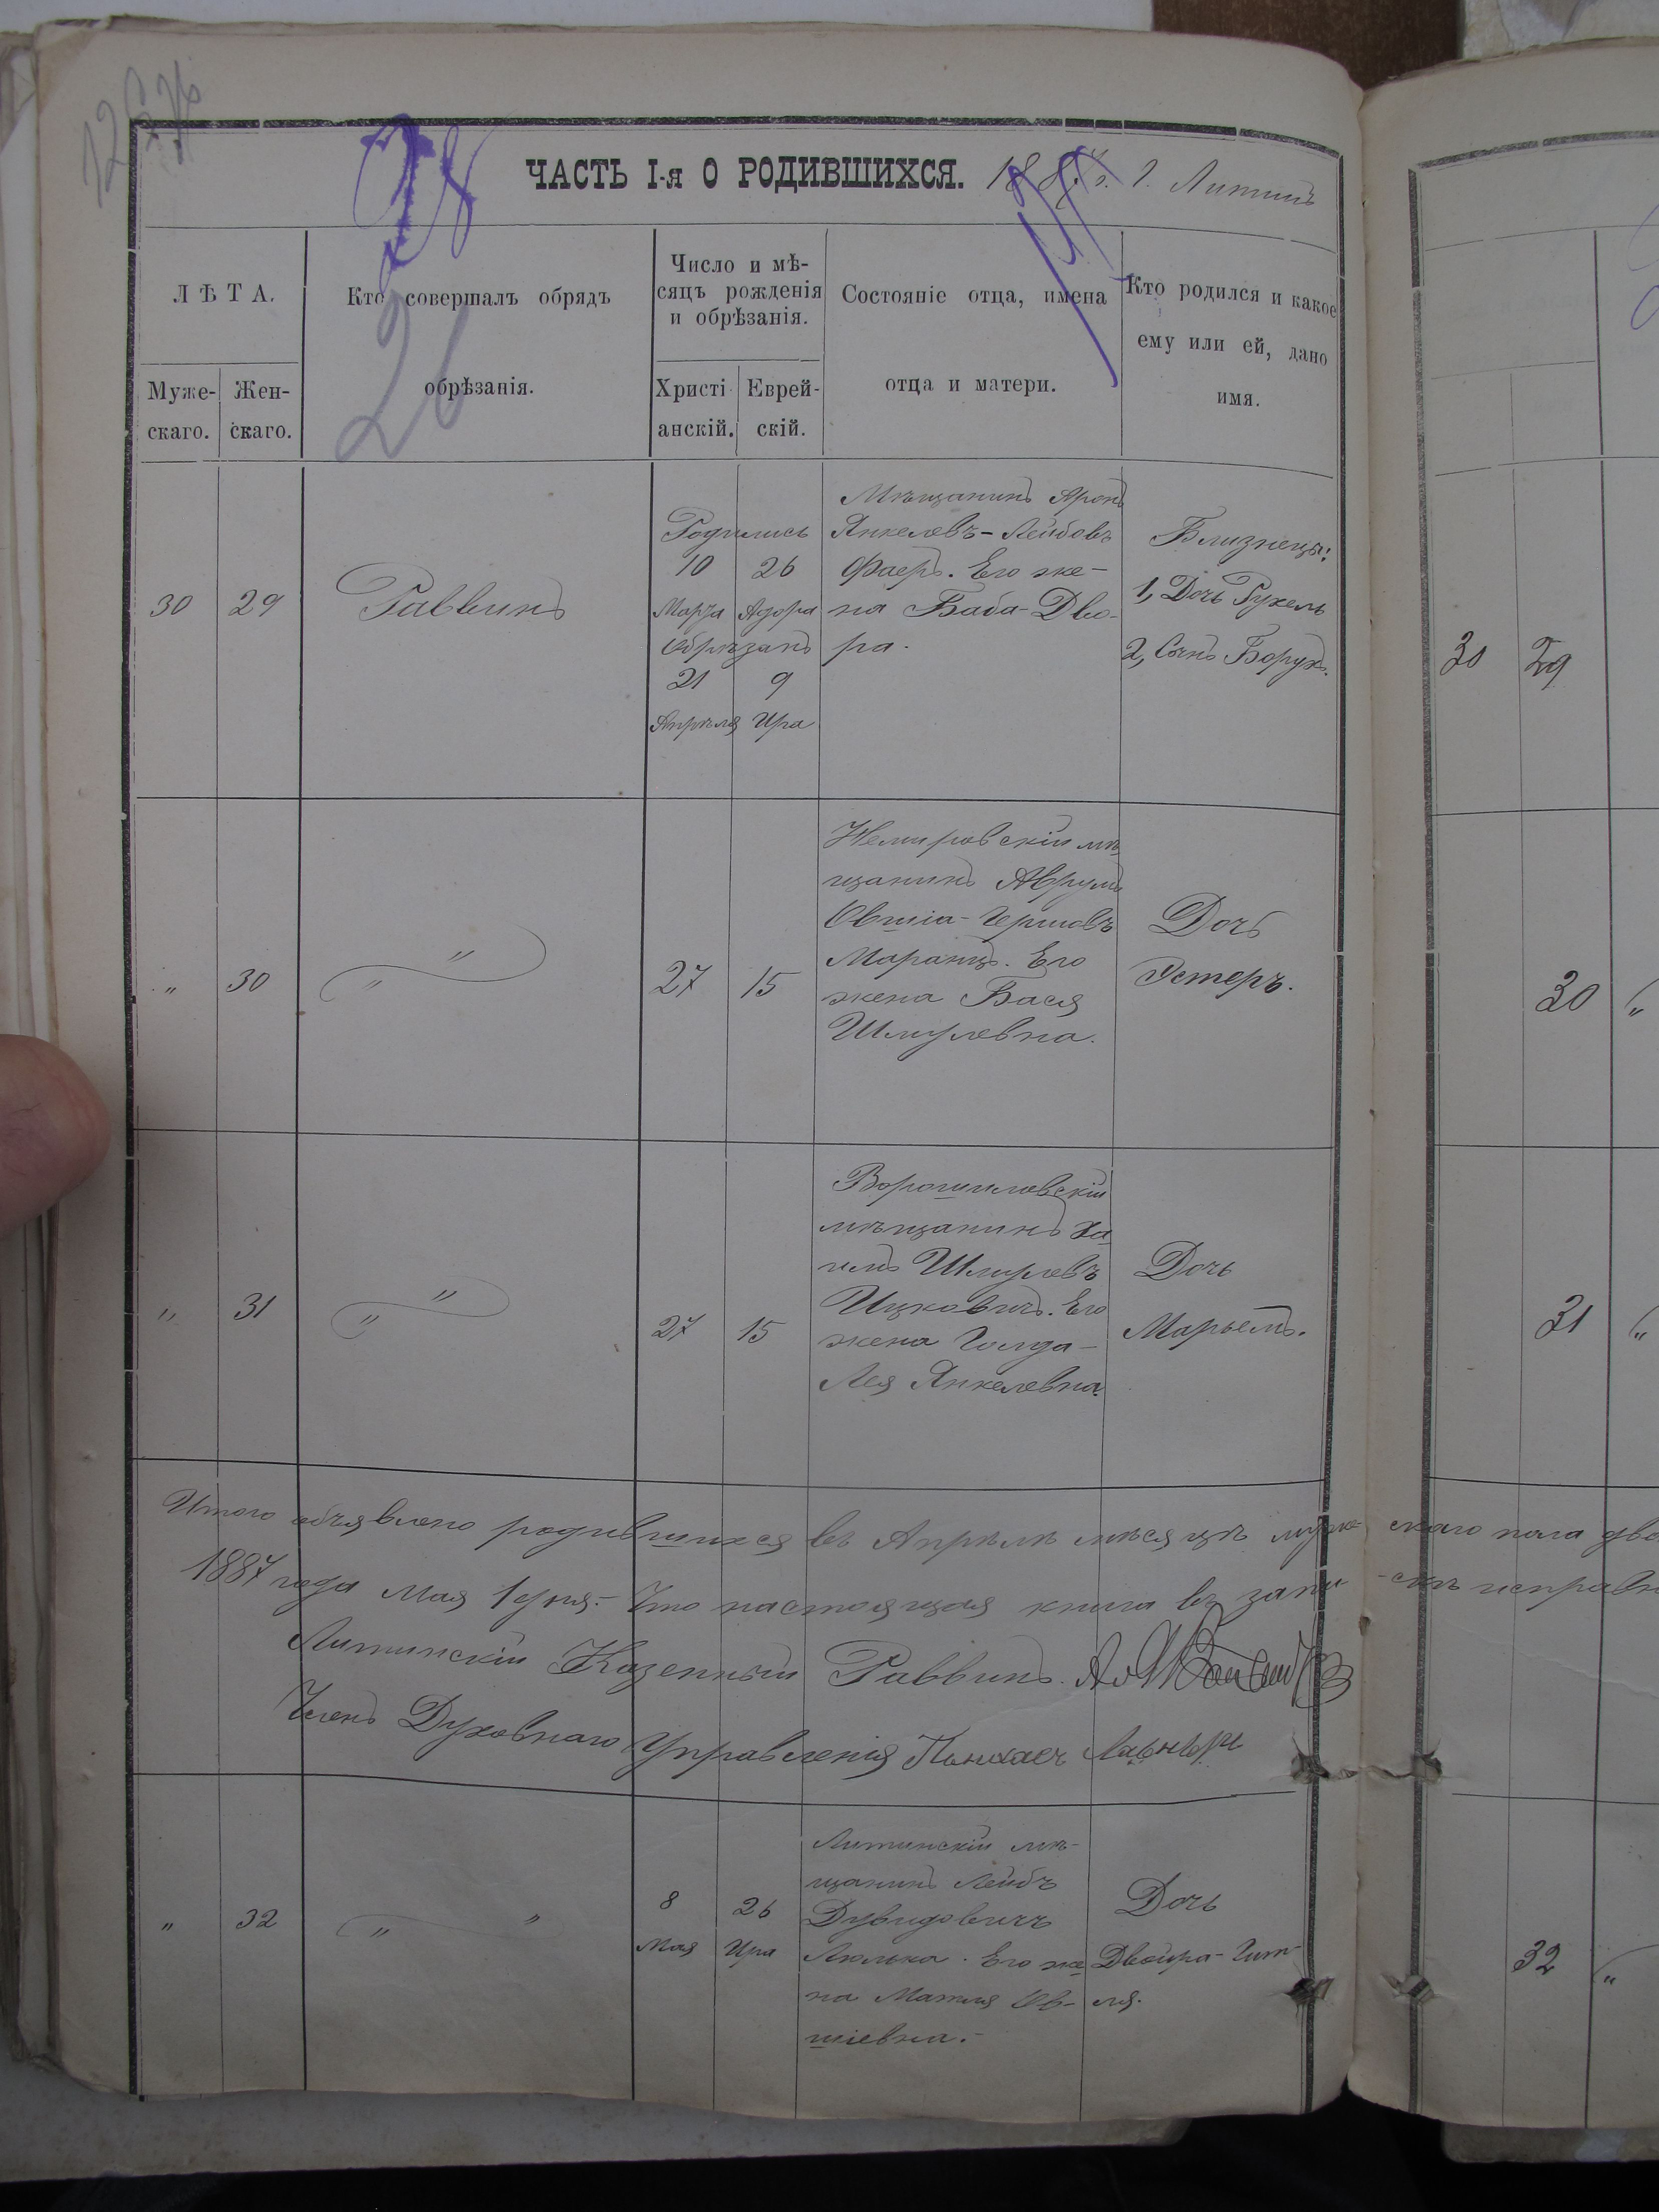 ЧАСТЬ I-я О РОДИВШИХСЯ. 1887 г. Г. Литинъ
ЛѢТА.
Муже-
скаго.
Жен-
скаго.
Кто совершалъ обрядъ
обрѣзанія.
Число и мѣ-
сяцъ рожденія
и обрѣзанія.
Христі
анскій.
Еврей-
скій.
Состояніе отца, имена
отца и матери.
Кто родился и какое
ему или ей, дано
имя.
30 29 Раввинъ
Родились
10 26
Марта Адора
Обрѣзанъ
21 9
Апрѣля Ира
Мѣщанинъ Аронъ
Янкелевъ-Лейбовъ
Фаеръ. Его же-
на Баба-Дво-
ра.
Близнецы:
1, Дочь Рухель
2, Сынъ Борухъ.
30 29
" 30 " "
27 15
Немировскій мѣ
щанинъ Аврумъ
Овшіа-Гершовъ
Маранцъ. Его
жена Бася
Шмулевна.
Дочь
Эстеръ.
30 "
" 31 " "
27 15
Ворошиловскій
мѣщанинъ Ха
имъ Шмулевъ
Ицковичъ. Его
жена Голда-
Лея Янкелевна.
Дочь
Марьемъ.
31 "
Итого объявлено родившихся въ Апрѣлѣ мѣсяцѣ муже- скаго пола
1887 года Мая 1 дня. Что настоящая книга въ запи -скѣ
Литинскій Казенный Раввинъ.
Членъ Духовнаго Управленія Пинхасъ
" 32 " "
8 26
Мая Ира
Литинскій мѣ-
щанинъ Лейбъ
Дувидовичъ
Люлька. Его же
на Матля Ов-
шіевна.-
Дочь
Двойра-Гит-
ля.
32 "